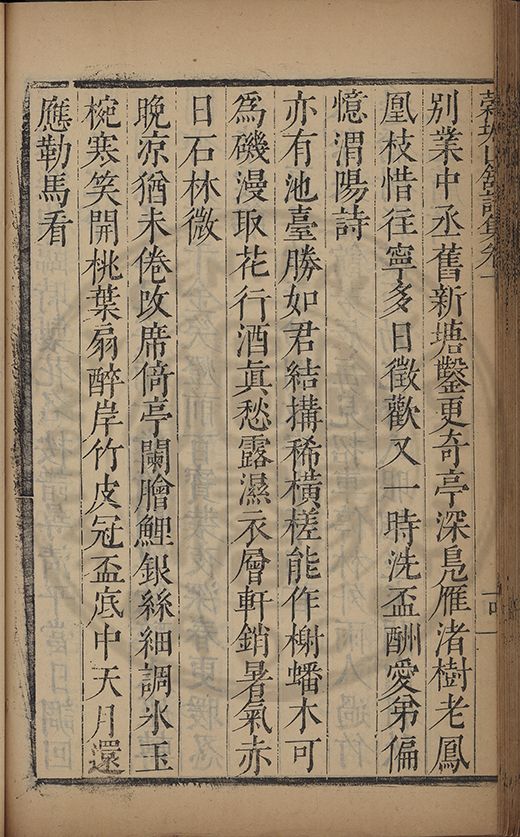 穀城山館詩集卷
別業中丞舊新塘鑿更奇亭深鳧雁渚樹老鳳
凰枝惜往寧多日徵歡又一時洗盃酬愛弟偏
憶渭陽詩
亦有池臺勝如君結搆稀橫槎能作榭蟠木可
為磯漫取花行酒眞愁露濕衣層軒銷暑氣赤
日石林微
晚凉猶未倦攺席倚亭闌膾鯉銀絲細調氷玉
椀寒笑開桃葉扇醉岸竹皮冠盃底中天月還
應勒馬看